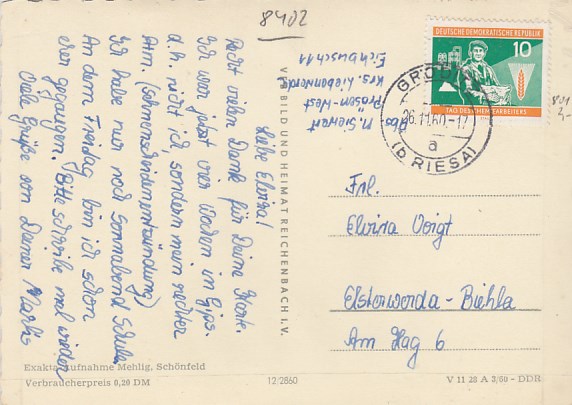 8402
Liebe Elvira!
Recht vielen Dank für Deine Karte.
Ich war jetzt vier Wochen in Gips.
d.h. nicht ich, sondern mein rechter
Arm. (Sehnenscheidenentzündung)
Ich habe nur noch Sonnabend Schule
An dem Freitag bin ich schon
gegangen. Bitte schreibe mal wieder
Viele Grüße von Deiner
Abs.
M. Siewert
Prösen-West
Krs. Liebenwerda
Eichbusch 11
VERBILD UND HEIMAT REICHENBACH I. V.
DEUTSCHE DEMOKRATISCHE REPUBLIK
10
TAG DES CHEMIEARBEITERS
GRÖDITZ
26.11.60.-17
a
(b RIESA)
Frl.
Elvira Voigt
Elsterwerda-Biehla
Am Hag 6
Exakta-Aufnahme Mehlig, Schönfeld
Verbraucherpreis 0,20 DM
12/2860
V 11 28 A 2/60 - DDR